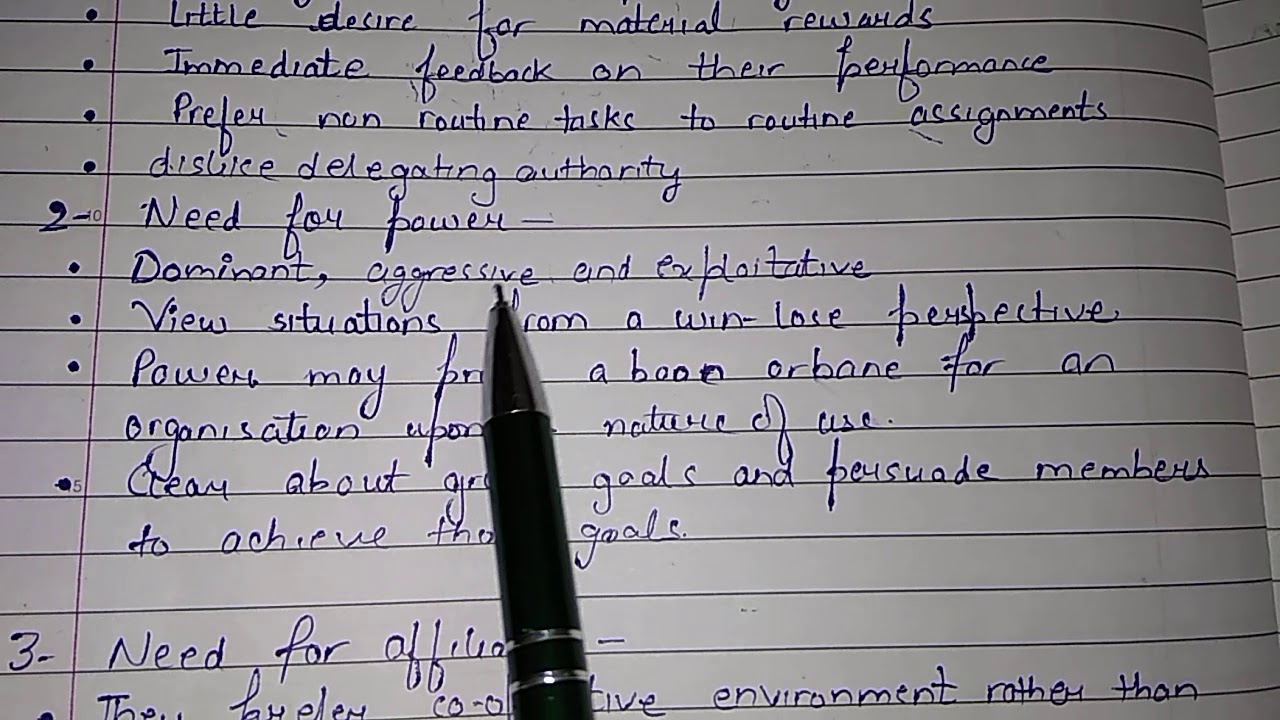 • Little desire for material rewards
• Immediate feedback on their performance
• Prefer non routine tasks to routine assignments
• dislike delegating authority
2- Need for power -
• Dominant, aggressive and exploitative
• View situations from a win-lose perspective.
• Power may a boon or bane for an
organisation upon nature of use.
• Clear about goals and persuade members
to achieve goals.
3- Need for -
• They prefer environment rather than